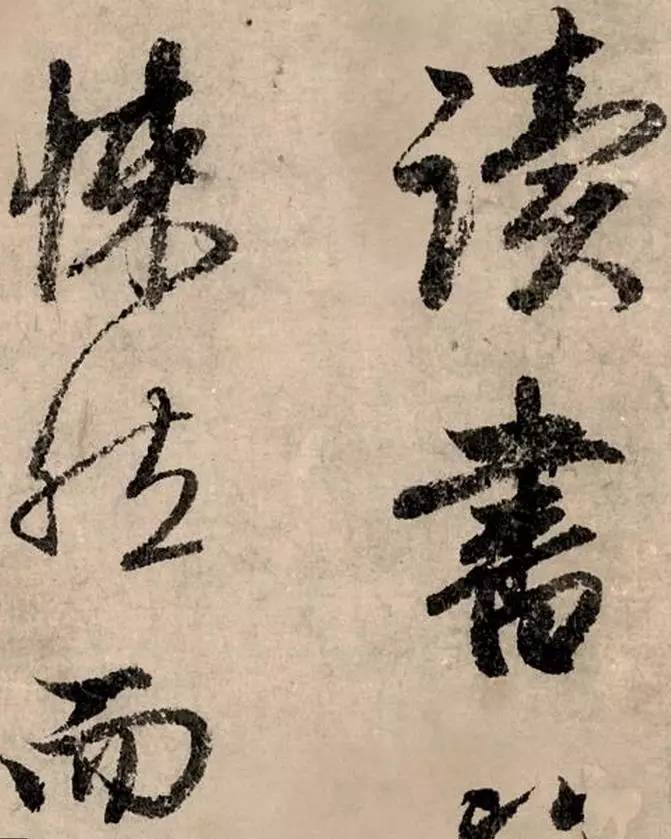 讀書
悚然而